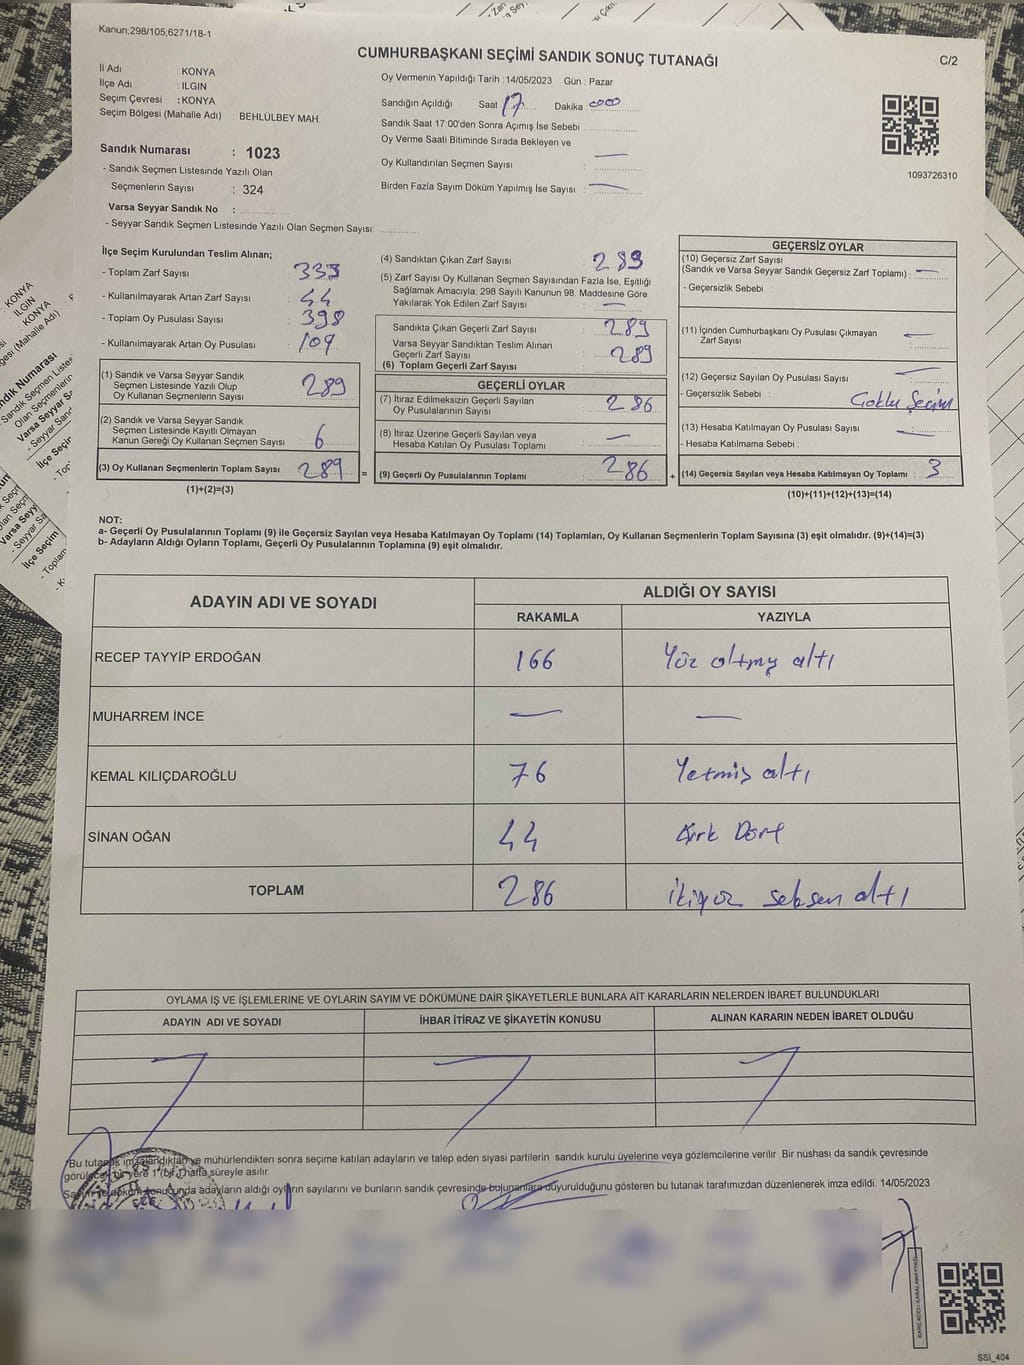 Kanun;298/105,6271/18-1
CUMHURBAŞKANI SEÇİMİ SANDIK SONUÇ TUTANAĞI
C/2
İl Adı : KONYA
İlçe Adı : ILGIN
Seçim Çevresi : KONYA
Seçim Bölgesi (Mahalle Adı) BEHLÜLBEY MAH.
Sandık Numarası : 1023
- Sandık Seçmen Listesinde Yazılı Olan
Seçmenlerin Sayısı : 324
Varsa Seyyar Sandık No :
- Seyyar Sandık Seçmen Listesinde Yazılı Olan Seçmen Sayısı:
Oy Vermenin Yapıldığı Tarih : 14/05/2023 Gün : Pazar
Sandığın Açıldığı Saat 17 Dakika : 0000
Sandık Saat 17:00'den Sonra Açımış İse Sebebi :
Oy Verme Saati Bitiminde Sırada Bekleyen ve
Oy Kullandırılan Seçmen Sayısı : —
Birden Fazla Sayım Döküm Yapılmış İse Sayısı : —
1093726310
İlçe Seçim Kurulundan Teslim Alınan;
- Toplam Zarf Sayısı : 333
- Kullanılmayarak Artan Zarf Sayısı : 44
- Toplam Oy Pusulası Sayısı : 398
- Kullanılmayarak Artan Oy Pusulası : 109
(1) Sandık ve Varsa Seyyar Sandık
Seçmen Listesinde Yazılı Olup
Oy Kullanan Seçmenlerin Sayısı : 289
(2) Sandık ve Varsa Seyyar Sandık
Seçmen Listesinde Kayıtlı Olmayan
Kanun Gereği Oy Kullanan Seçmen Sayısı : 6
(3) Oy Kullanan Seçmenlerin Toplam Sayısı : 289 =
(1)+(2)=(3)
(4) Sandıktan Çıkan Zarf Sayısı : 289
(5) Zarf Sayısı Oy Kullanan Seçmen Sayısından Fazla İse, Eşitliği
Sağlamak Amacıyla; 298 Sayılı Kanunun 98. Maddesine Göre
Yakılarak Yok Edilen Zarf Sayısı : —
Sandıkta Çıkan Geçerli Zarf Sayısı : 289
Varsa Seyyar Sandıktan Teslim Alınan
Geçerli Zarf Sayısı : 289
(6) Toplam Geçerli Zarf Sayısı
GEÇERLİ OYLAR
(7) İtiraz Edilmeksizin Geçerli Sayılan
Oy Pusulalarının Sayısı : 286
(8) İtiraz Üzerine Geçerli Sayılan veya
Hesaba Katılan Oy Pusulaları Toplamı : —
(9) Geçerli Oy Pusulalarının Toplamı : 286 +
GEÇERSİZ OYLAR
(10) Geçersiz Zarf Sayısı
(Sandık ve Varsa Seyyar Sandık Geçersiz Zarf Toplamı) : —
- Geçersizlik Sebebi :
(11) İçinden Cumhurbaşkanı Oy Pusulası Çıkmayan
Zarf Sayısı : —
(12) Geçersiz Sayılan Oy Pusulası Sayısı : —
- Geçersizlik Sebebi : Çoklu Seçim
(13) Hesaba Katılmayan Oy Pusulası Sayısı : —
- Hesaba Katılmama Sebebi :
(14) Geçersiz Sayılan veya Hesaba Katılmayan Oy Toplamı : 3
(10)+(11)+(12)+(13)=(14)
NOT:
a- Geçerli Oy Pusulalarının Toplamı (9) ile Geçersiz Sayılan veya Hesaba Katılmayan Oy Toplamı (14) Toplamları, Oy Kullanan Seçmenlerin Toplam Sayısına (3) eşit olmalıdır. (9)+(14)=(3)
b- Adayların Aldığı Oyların Toplamı, Geçerli Oy Pusulalarının Toplamına (9) eşit olmalıdır.
ADAYIN ADI VE SOYADI
ALDIĞI OY SAYISI
RAKAMLA YAZIYLA
RECEP TAYYİP ERDOĞAN 166 Yüz altmış altı
MUHARREM İNCE — —
KEMAL KILIÇDAROĞLU 76 Yetmiş altı
SİNAN OĞAN 44 Kırk Dört
TOPLAM 286 ikiyüz seksen altı
OYLAMA İŞ VE İŞLEMLERİNE VE OYLARIN SAYIM VE DÖKÜMÜNE DAİR ŞİKAYETLERLE BUNLARA AİT KARARLARIN NELERDEN İBARET BULUNDUKLARI
ADAYIN ADI VE SOYADI İHBAR İTİRAZ VE ŞİKAYETİN KONUSU ALINAN KARARIN NEDEN İBARET OLDUĞU
*Bu tutanak imzalandıktan ve mühürlendikten sonra seçime katılan adayların ve talep eden siyasi partilerin sandık kurulu üyelerine veya gözlemcilerine verilir .Bir nüshası da sandık çevresinde
görülecek bir yere 1 (bir) hafta süreyle asılır.
Sayım ve döküm sonucunda adayların aldığı oyların sayılarını ve bunların sandık çevresinde bulunanlara duyurulduğunu gösteren bu tutanak tarafımızdan düzenlenerek imza edildi. 14/05/2023
SSI_404